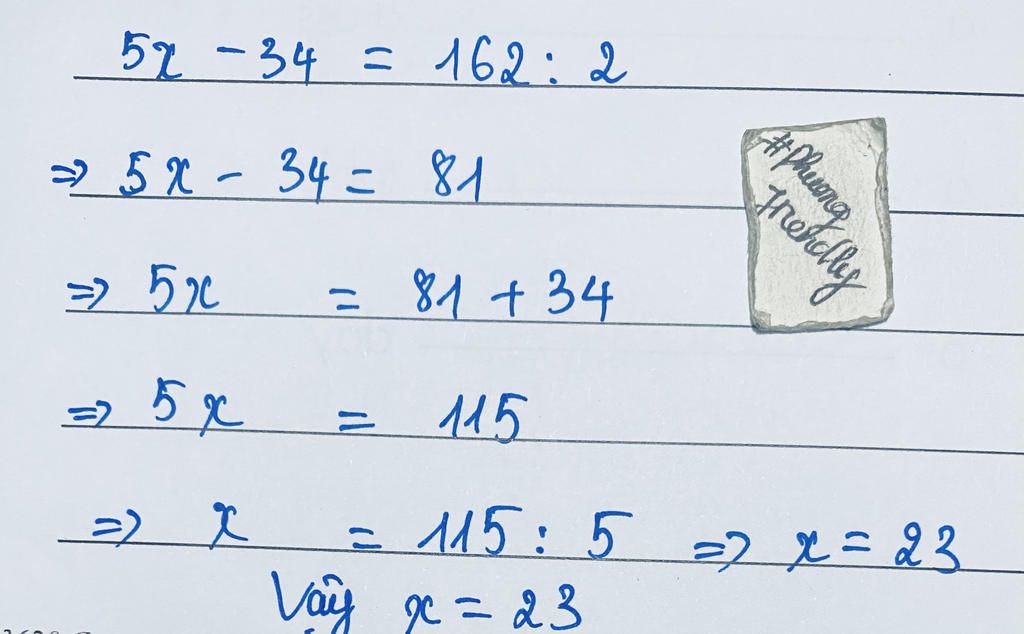 5x - 34 = 162 : 2
⇒ 5x - 34 = 81
⇒ 5x = 81 + 34
⇒ 5x = 115
⇒ x = 115 : 5 ⇒ x = 23
Vậy x = 23
#Phuong
Friendly